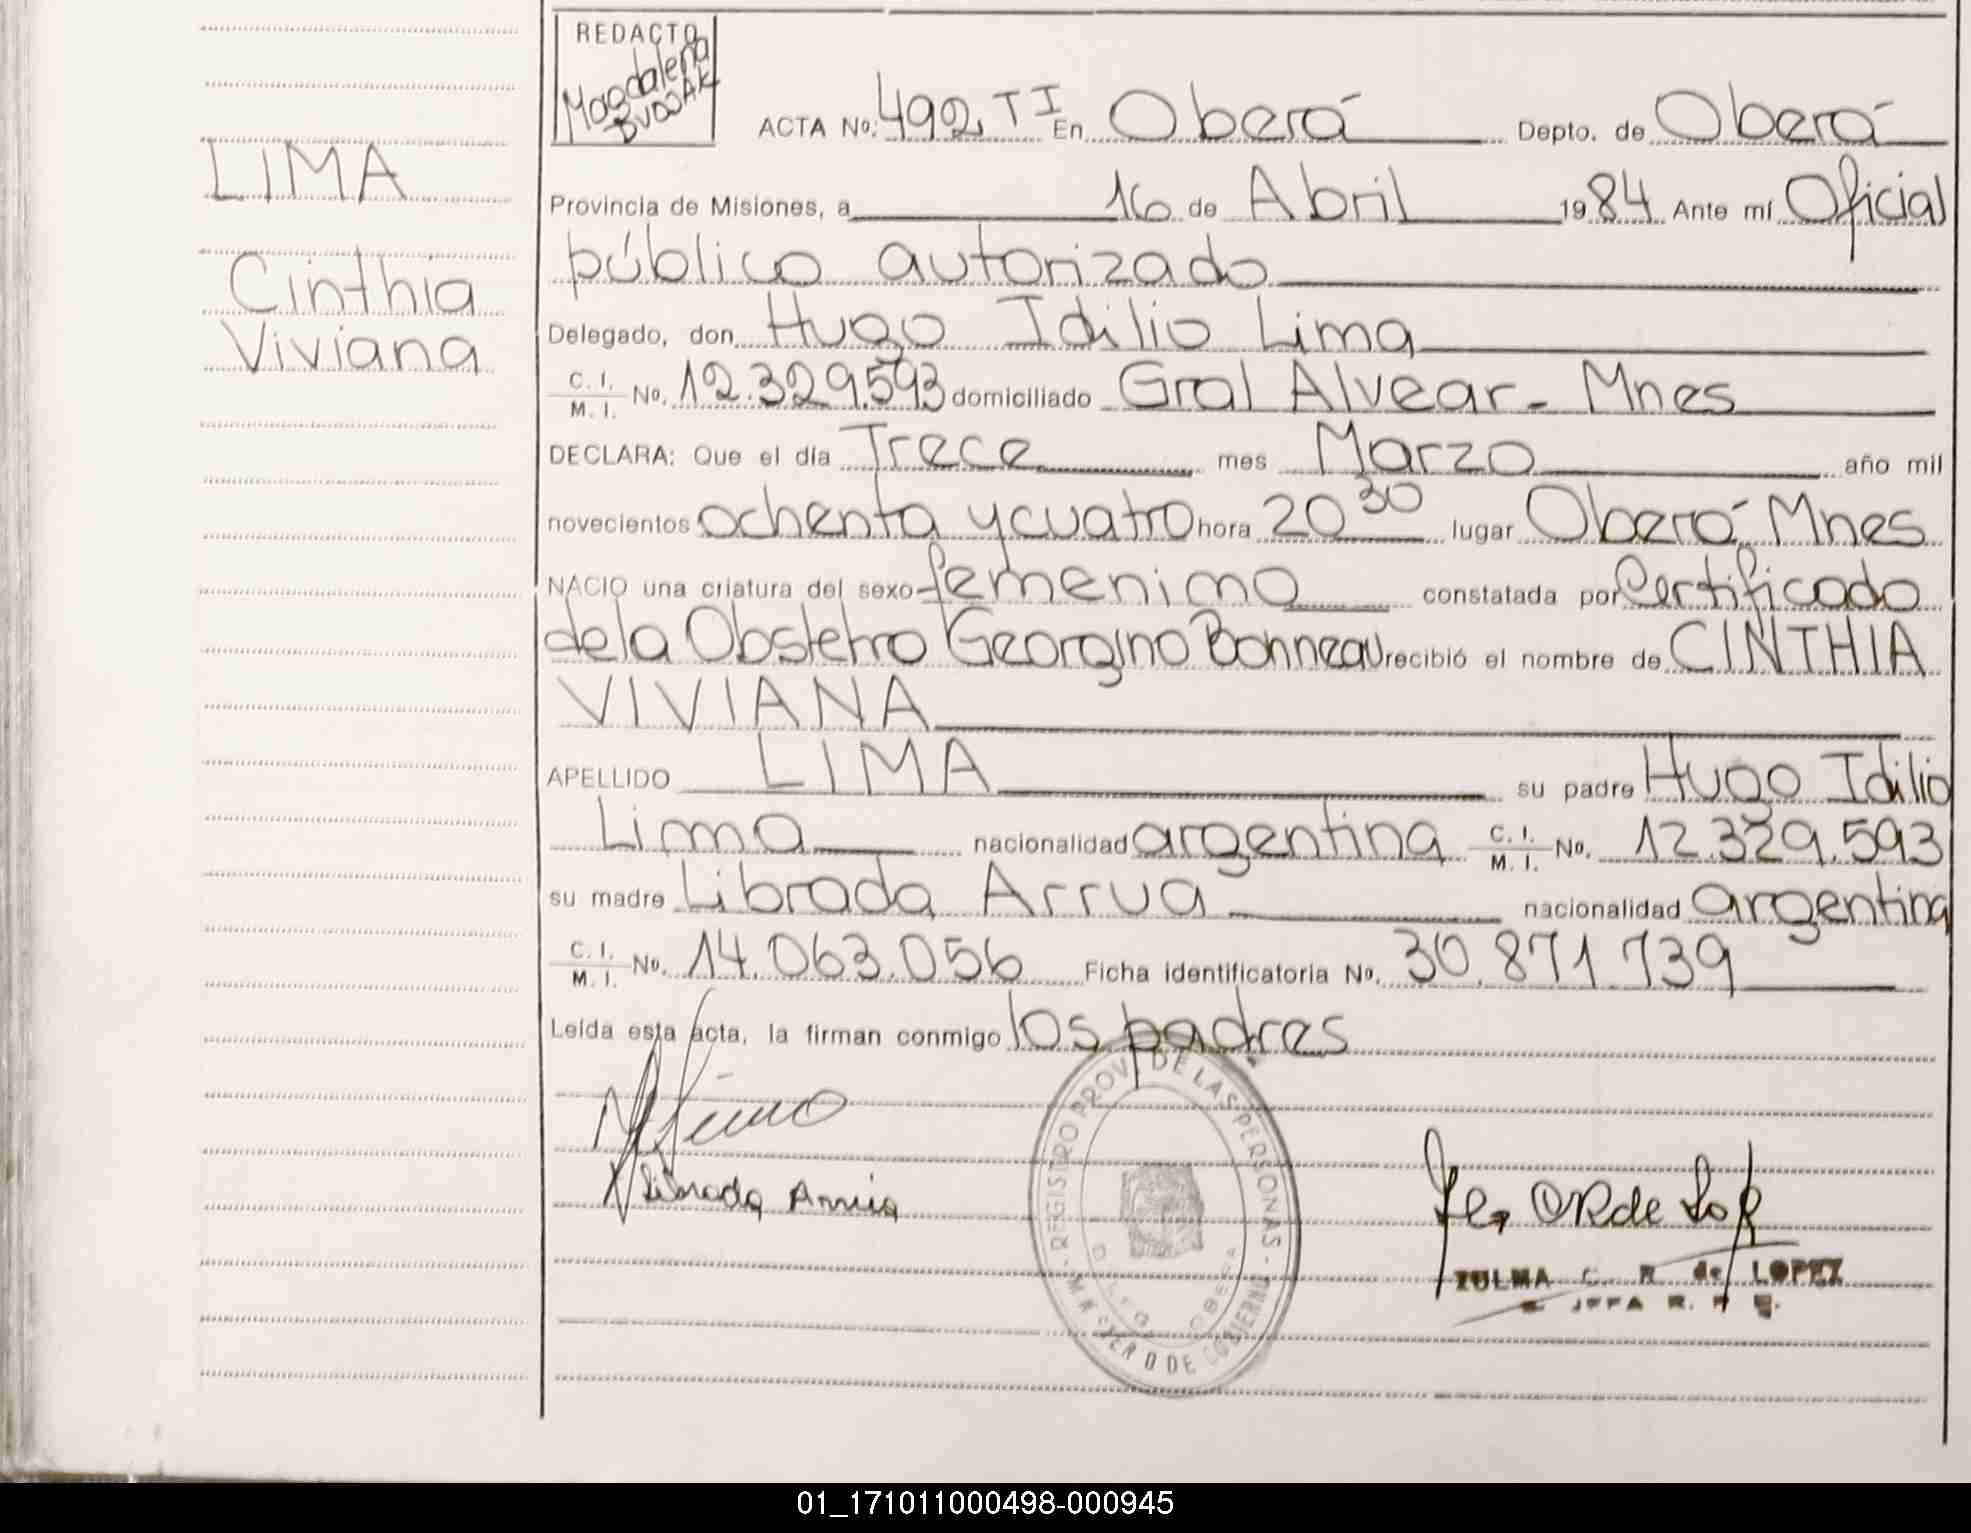 REDACTO
Magdalena
ACTA No. 492 TI En Oberá Depto. de Oberá
LIMA
Cinthia
Viviana
Provincia de Misiones, a 16 de Abril 1984 Ante mí Oficial
público autorizado
Delegado, don Hugo Idilio Lima
C. I. / M. I. No. 12.329.593 domiciliado Gral Alvear - Mnes
DECLARA: Que el día Trece mes Marzo año mil
novecientos ochenta y cuatro hora 20 30 lugar Oberá Mnes
NACIO una criatura del sexo femenino constatada por Certificado
de la Obstetra Georgina Bonneau recibió el nombre de CINTHIA
VIVIANA
APELLIDO LIMA su padre Hugo Idilio
Lima nacionalidad argentina C. I. / M. I. No. 12.329.593
su madre Librada Arrua nacionalidad argentina
C. I. / M. I. No. 14.063.056 Ficha identificatoria No. 30.871.739
Leída esta acta, la firman conmigo los padres
Librada Arrua
REGISTRO PROV. DE LAS PERSONAS
DE GOBIERNO
ZULMA C. R. de LOPEZ
JEFA R. P.
01_171011000498-000945